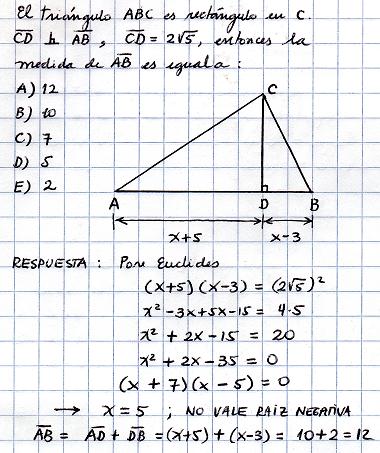 El triángulo ABC es rectángulo en C.
CD ⊥ AB, CD = 2√5, entonces la
medida de AB es igual a :
A) 12
B) 10
C) 7
D) 5
E) 2
C
A
D
B
x+5
x-3
RESPUESTA : Por Euclides
(x+5)(x-3) = (2√5)²
x² -3x+5x-15 = 4·5
x² + 2x -15 = 20
x² + 2x -35 = 0
(x + 7)(x - 5) = 0
→ x = 5 ; NO VALE RAIZ NEGATIVA
AB = AD + DB = (x+5) + (x-3) = 10+2 = 12